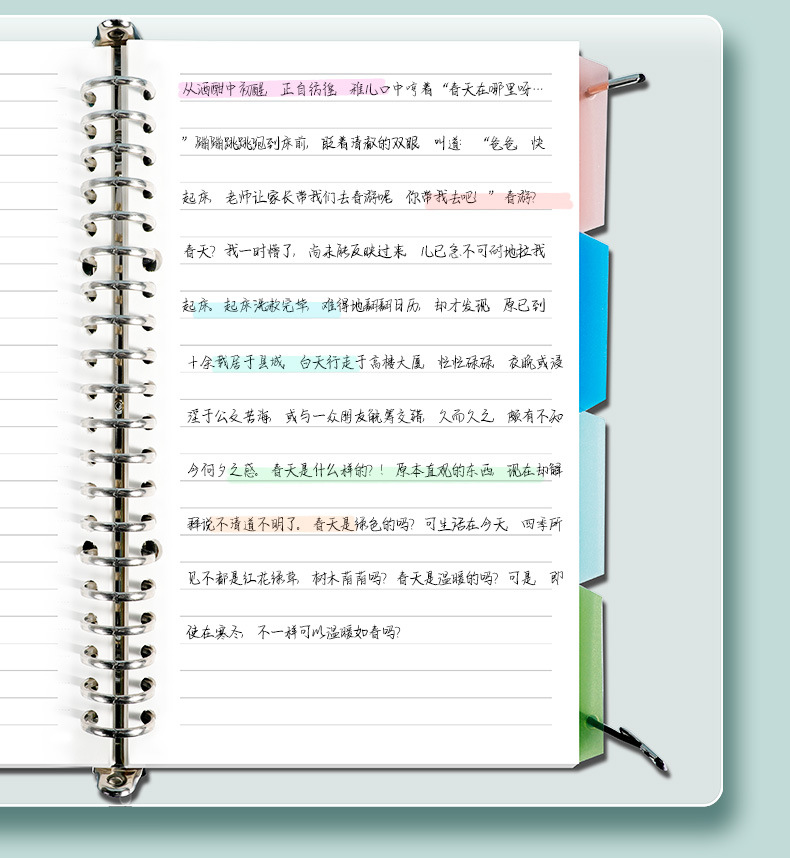 从酒酣中初醒，正自彷徨，稚儿口中哼着“春天在哪里呀…
”蹦蹦跳跳跑到床前，眨着清澈的双眼，叫道：“爸爸，快
起床，老师让家长带我们去春游呢，你带我去吧！”春游？
春天？我一时懵了，尚未能反映过来，儿已急不可耐地拉我
起床。起床洗漱完毕，难得地翻翻日历，却才发现，原已到
十余我居于县城，白天行走于高楼大厦，忙忙碌碌，夜晚或浸
淫于公文苦海，或与一众朋友觥筹交错，久而久之，颇有不知
今何夕之惑。春天是什么样的？！原本直观的东西，现在却解
释说不清道不明了。春天是绿色的吗？可生活在今天，四季所
见不都是红花绿草，树木荫荫吗？春天是温暖的吗？可是，即
使在寒冬，不一样可以温暖如春吗？